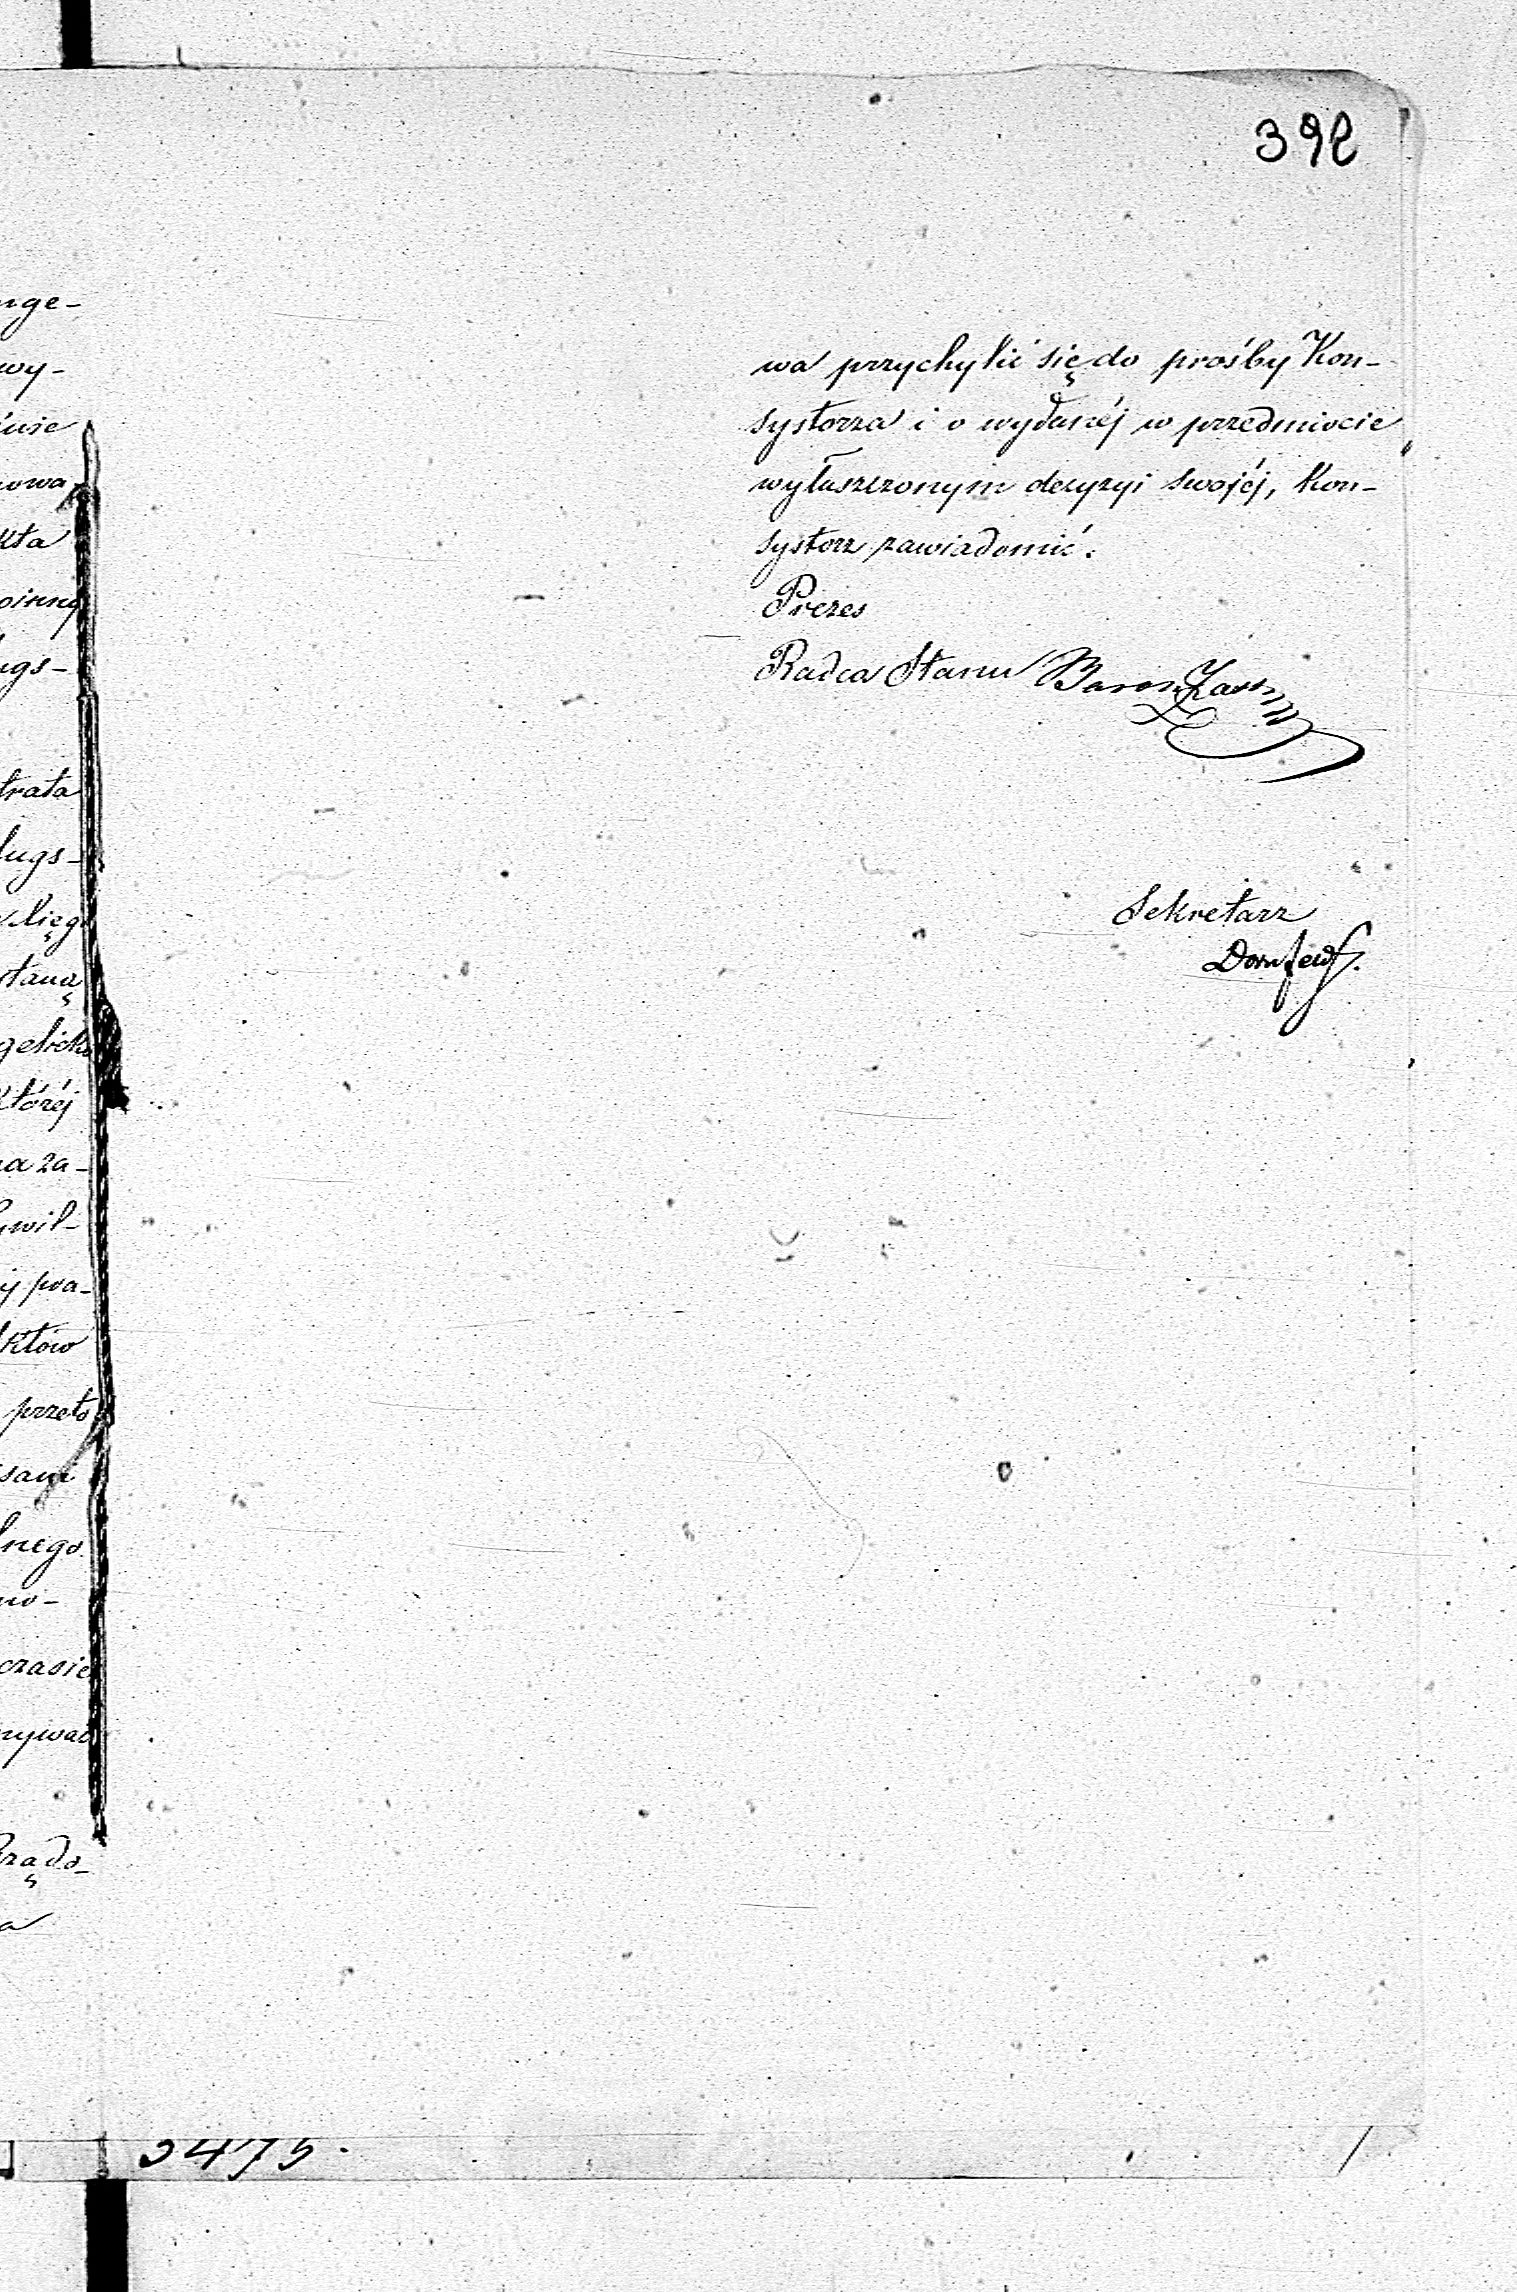 392
nge-
wy-
nowa
kta
ugs-
trata
ługs-
staną
gelick
której
na za-
ij pra-
któw
przeto
lnego
mo-
czasie
rządo-
a
wa przychylić się do prośby Kon-
systorza i o wydanéj w przedmiocie
wyłuszczonym decyzyi swojéj, Kon-
systorz zawiadomić.
Prezes
Radca Stanu Baron
Sekretarz
3475.